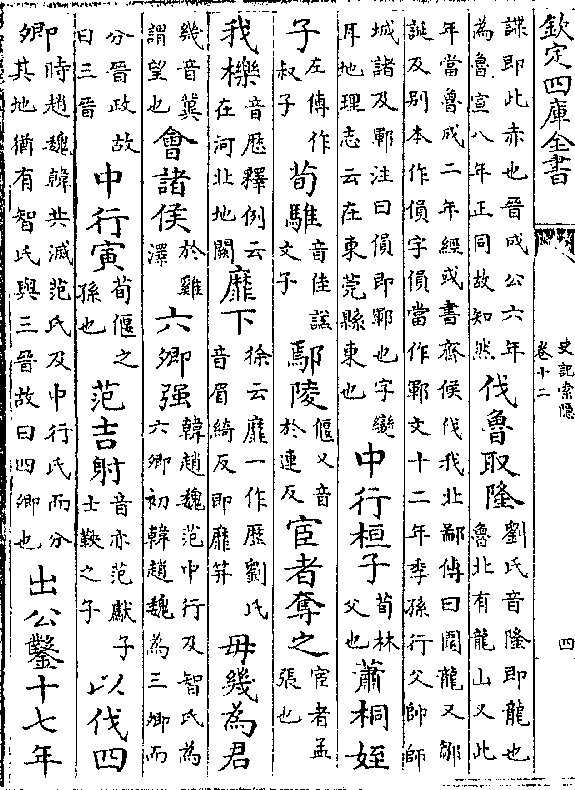 欽定四庫全書
史記索隱
卷十二
四
諜即此亦也晉成公六年
為魯宣八年正同故知然
伐魯取隆
劉氏音隆即龍也
魯北有龍山又此
年當魯成二年經或書齊侯伐我北鄙傳曰圍龍又鄒
誕及别本作傊字傊當作鄆文十二年季孫行父帥師
城諸及鄆注曰傊即鄆也字變
耳地理志云在東莞縣東也
中行桓子
荀林
父也
蕭桐姪
子
左傳作
叔子
荀騅
音佳謚
文子
鄢陵
偃又音
於連反
宦者奪之
宦者孟
張也
我櫟
音歴釋例云
在河北地闕
靡下
徐云靡一作歴劉氏
音眉綺反即靡笄
毋幾為君
幾音冀
謂望也
會諸侯
於雞
澤
六卿强
韓趙魏范中行及智氏為
六卿初韓趙魏為三卿而
分晉政故
曰三晉
中行寅
荀偃之
孫也
范吉射
音亦范獻子
士鞅之子
以伐四
卿
時趙魏韓共滅范氏及中行氏而分
其地猶有智氏與三晉故曰四卿也
出公鑿十七年